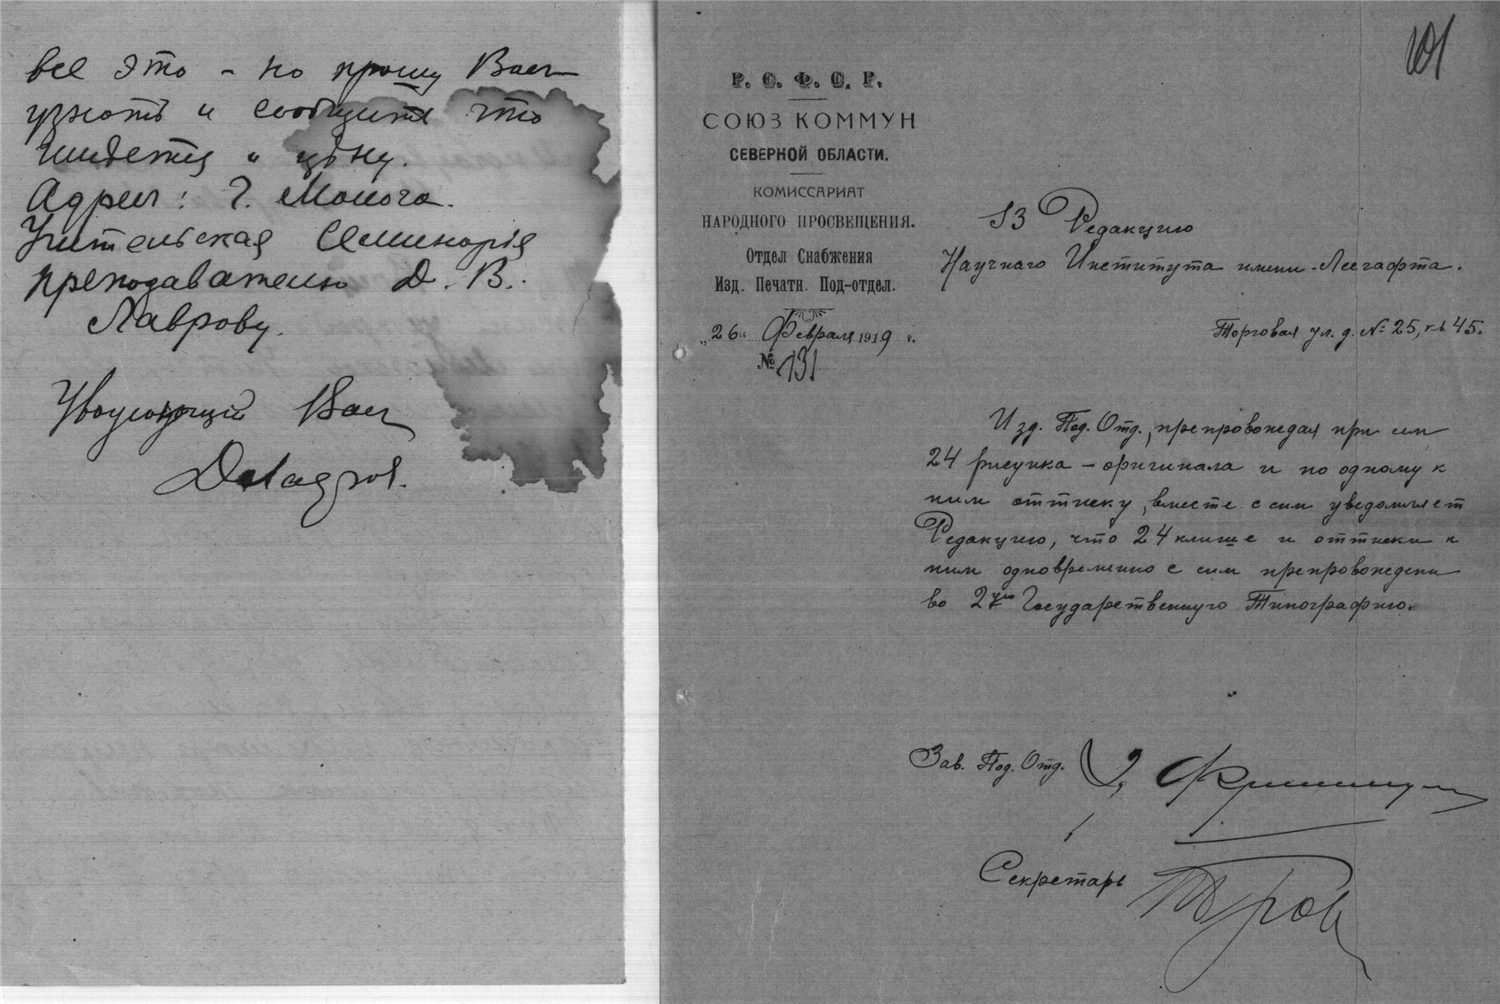 все это – но прошу Вас
узнать и сообщить что
имеется и цѣну.
Адрес: г. Молога.
Учительская Семинарія
преподавателю Д. В.
Лаврову.
Уважающий Вас
ДЛавров.
101
Р. С. Ф. С. Р.
СОЮЗ КОММУН
СЕВЕРНОЙ ОБЛАСТИ.
КОМИССАРИАТ
НАРОДНОГО ПРОСВЕЩЕНИЯ.
Отдел Снабжения
Изд. Печатн. Под-отдел.
„26" Февраля 1919 г.
№ 131
В Редакцию
Научнаго Института имени Лесгафта.
Торговая ул. д. № 25, кв 45.
Изд. Под. Отд., препровождая при сем
24 рисунка – оригинала и по одному к
ним оттиску, вместе с сим уведомляет
Редакцию, что 24 клише и оттиски к
ним одновременно с сим препровождены
во 2ую Государственную Типографию.
Зав. Под. Отд.
Секретарь